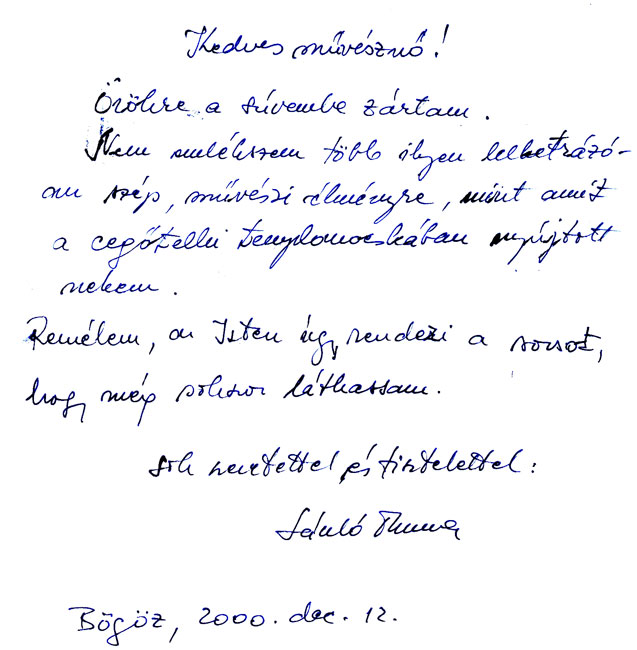 Kedves művésznő!
Örökre a szívembe zártam.
Nem emlékszem több ilyen lélketrázó-
an szép, művészi élményre, mint amit
a cegőtelki templomocskában nyújtott
nekem.
Remélem, az Isten úgy rendezi a sorsot,
hogy még sokszor láthassam.
Sok szeretettel és tisztelettel:
Bögöz, 2000. dec. 12.